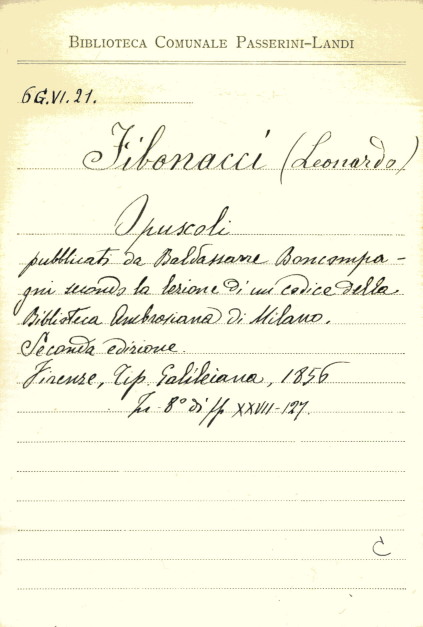 BIBLIOTECA COMUNALE PASSERINI-LANDI
6G.VI.21.
Fibonacci (Leonardo)
Opuscoli
pubblicati da Baldassarre Boncompa-
gni secondo la lezione di un codice della
Biblioteca Ambrosiana di Milano.
Seconda edizione.
Firenze, Tip. Galileiana, 1856
In 8° di pp XXVII-127.
C